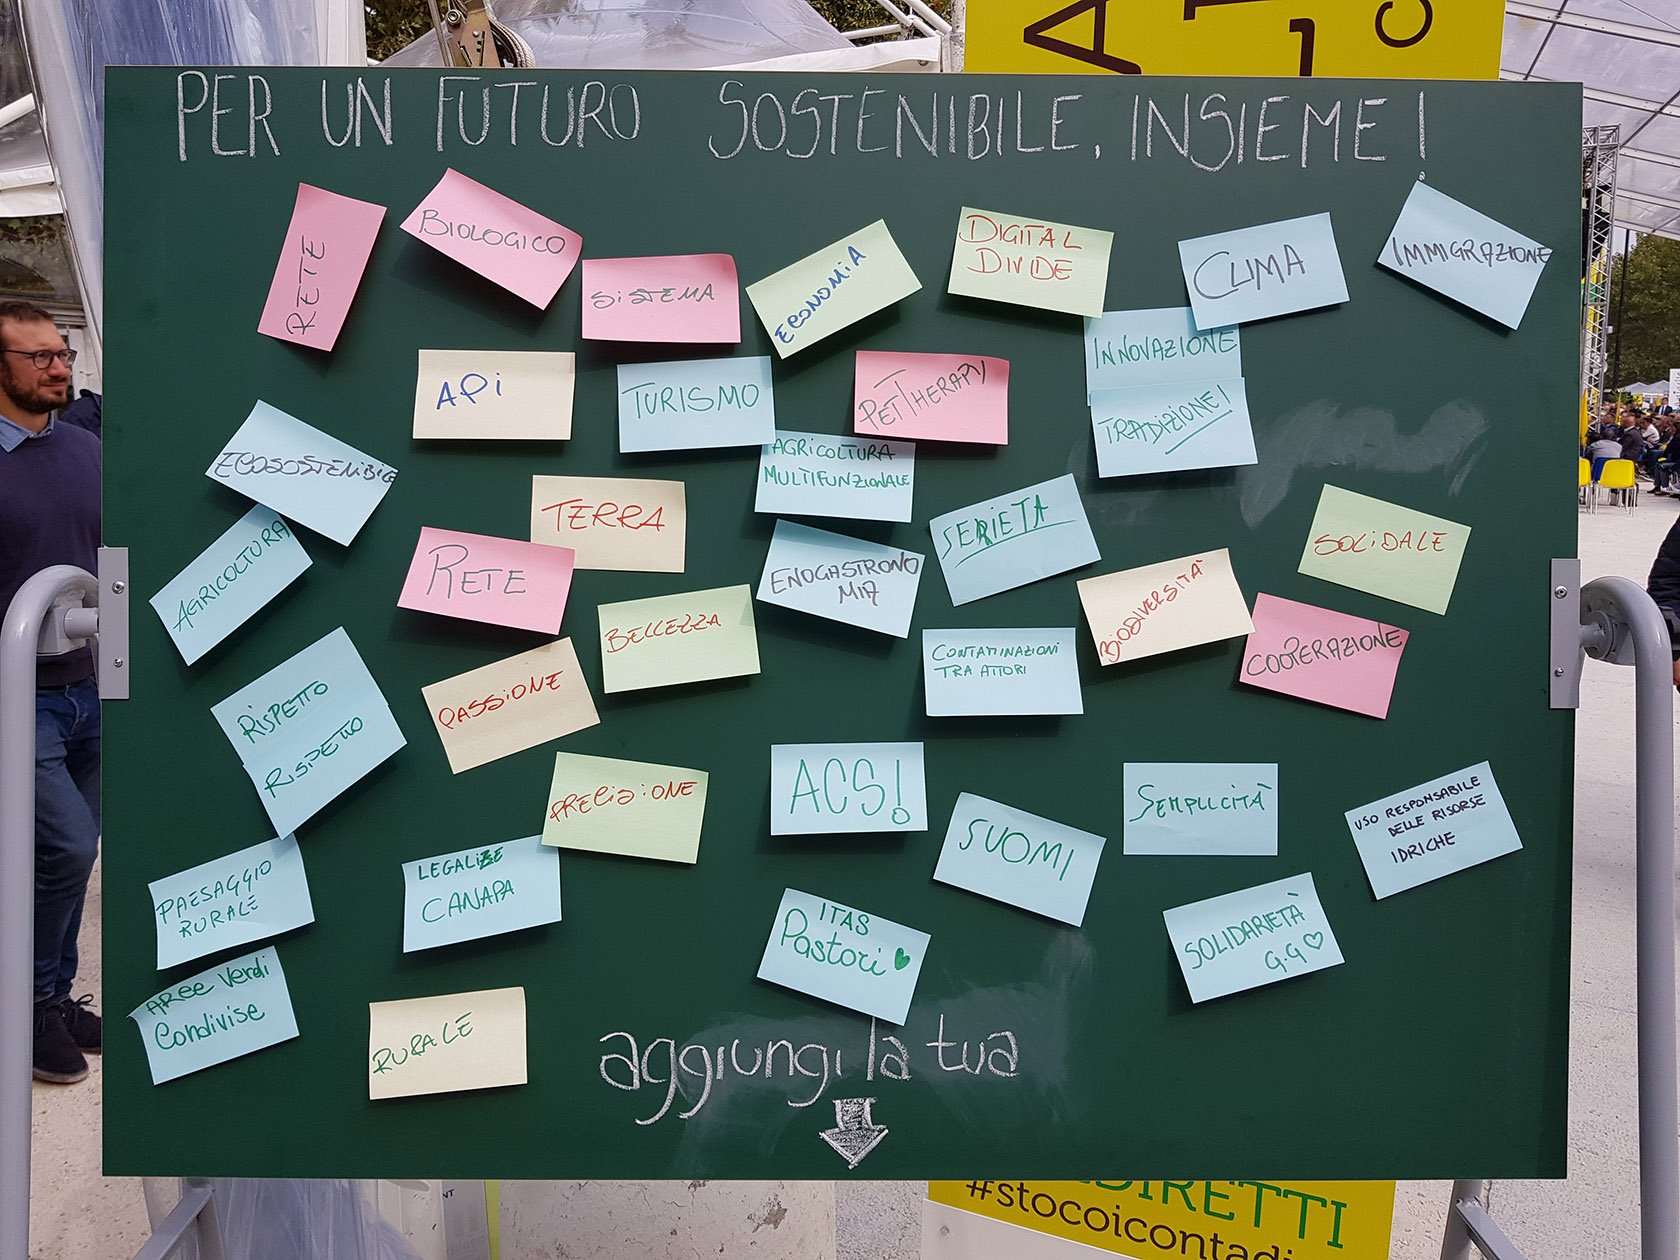 PER UN FUTURO SOSTENIBILE, INSIEME!
RETE
BIOLOGICO
SISTEMA
ECONOMIA
DIGITAL
DIVIDE
CLIMA
IMMIGRAZIONE
INNOVAZIONE
TRADIZIONE!
API
TURISMO
PET THERAPY
ECOSOSTENIBILE
AGRICOLTURA
MULTIFUNZIONALE
TERRA
SERIETA
SOLIDALE
AGRICOLTURA
RETE
BELLEZZA
ENOGASTRONO
MIA
BIODIVERSITÀ
COOPERAZIONE
CONTAMINAZIONI
TRA ATTORI
RISPETTO
RISPETTO
PASSIONE
PRECISIONE
ACS!
SUOMI
SEMPLICITÀ
USO RESPONSABILE
DELLE RISORSE
IDRICHE
PAESAGGIO
RURALE
LEGALIZE
CANAPA
ITAS
Pastori
SOLIDARIETÀ
G.G
Aree Verdi
Condivise
RURALE
aggiungi la tua
DIRETTI
#stocoicontadi